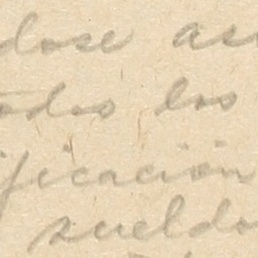 dose as
todos los
ificación
sueldo